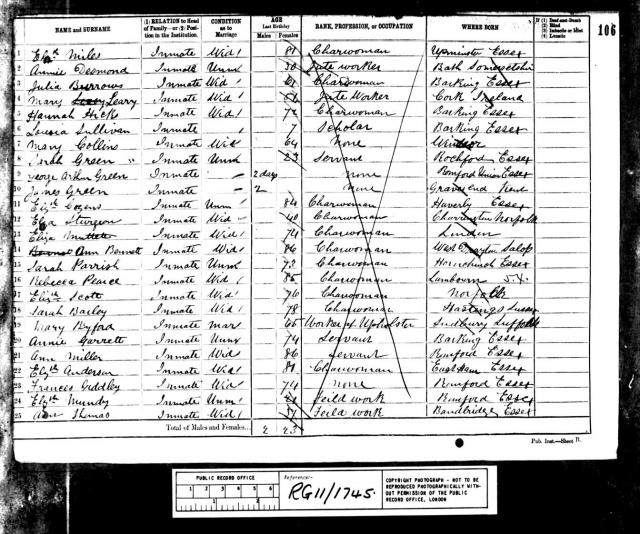 NAME and SURNAME
(1) RELATION to Head of Family—or (2) Position in the Institution.
CONDITION as to Marriage
AGE Last Birthday
Males Females
RANK, PROFESSION, or OCCUPATION
WHERE BORN
If (1) Deaf-and-Dumb (2) Blind (3) Imbecile or Idiot (4) Lunatic
106
1 Elizth Miles Inmate Wid 81 Charwoman Upminster Essex
2 Annie Desmond Inmate Unm 30 Jute worker Bath Somersetshire
3 Julia Burrows Inmate Wid Charwoman Barking Essex
4 Mary Leary Inmate Wid Jute Worker Cork Ireland
5 Hannah Hick Inmate Wid 72 Charwoman Barking Essex
6 Louisa Sullivan Inmate 7 Scholar Barking Essex
7 Mary Collins Inmate Wid 64 None Windsor
8 Sarah Green " Inmate Unm 23 Servant Rochford Essex
9 George Arthur Green Inmate — 2 days None Romford Union Essex
10 James Green Inmate — 2 None Gravesend Kent
11 Elizth Inmate Unm 84 Charwoman Essex
12 Eliza Sturgeon Inmate Wid 40 Charwoman Norfolk
13 Eliza Inmate Wid 74 Charwoman
14 Ann Bennett Inmate Wid 86 Charwoman Salop
15 Sarah Parrish Inmate Unm 73 Charwoman Hornchurch Essex
16 Rebecca Peace Inmate Wid 85 Charwoman Lambourn
17 Elizth Scott Inmate Wid 76 Charwoman Norfolk
18 Sarah Bailey Inmate Wid 78 Charwoman Hastings Sussex
19 Mary Byford Inmate Mar 65 Worker of Upholster Sudbury Suffolk
20 Annie Garrett Inmate Unm 74 Servant Barking Essex
21 Ann Miller Inmate Wid 86 Servant Romford Essex
22 Elizth Anderson Inmate Wid 81 Charwoman East Ham Essex
23 Frances Giddley Inmate Wid 74 None Romford Essex
24 Elizth Mundy Inmate Unm Feild work Romford Essex
25 Ann Thomas Inmate Wid Feild work Essex
Total of Males and Females... 2 23
Pub. Inst.—Sheet B.
PUBLIC RECORD OFFICE
1 2 3 4 5 6
1 2
Reference:-
RG11/1745.
COPYRIGHT PHOTOGRAPH - NOT TO BE
REPRODUCED PHOTOGRAPHICALLY WITH-
OUT PERMISSION OF THE PUBLIC
RECORD OFFICE, LONDON